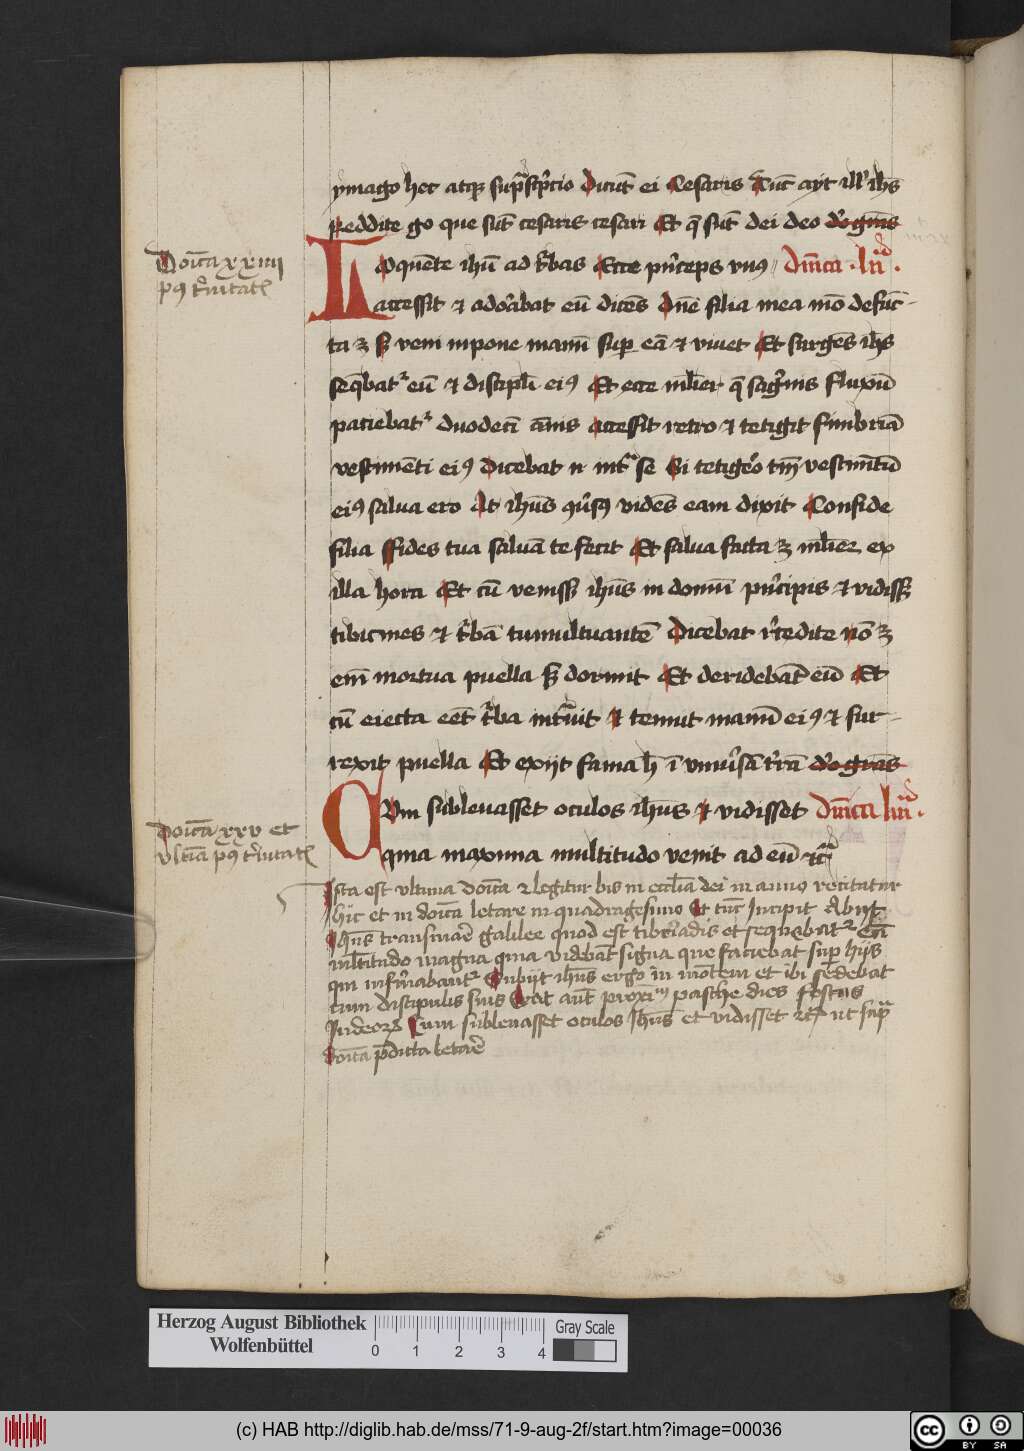 ymago hec atqꝫ sup̃scp̃cio Dicūt ei Cesaris Tūc ayt ill' ih̄s
Reddite go que sūt cesaris cesari Et q̄ sūt dei deo do gras
Doīca xxiiij
p9 t̄initatꝭ
Loquēte ihū ad t̄bas Ecce pn̄ceps vn9 Dn̄ica ·liij·
accessit et adorabat eū dicēs Dn̄e filia mea mō defūc-
ta ꝫ sꝫ veni inpone manū sup eā et viuet Et surgēs ih̄s
seq̄batr eū et discipl̄i ei9 Et ecce ml̄ier q̄ sāg̃inis fluxū
paciebatr duodecī ānis accessit retro et tetigit fimbriā
vestimēti ei9 dicebat n̄ intr̃ se Si tetigero tm̄ vestimētū
ei9 salua ero At ih̄us 9ūsꝰ vidēs eam dixit Confide
filia ffides tua saluā te fecit Et salua facta ꝫ ml̄ier ex
illa hora Et cū venissꝫ ih̄us in domū pn̄cipis et vidissꝫ
tibicines et t̄bā tumultuantē Dicebat r̄cedite nō ꝫ
em̄ mortua puella sꝫ dormit Et deridebāt eū Et
cū eiecta eēt t̄ba int̃uit Et tenuit manū ei9 et sur-
rexit puella Et exijt fama h̄ ī vniūsā t̄rā do gras
Doīca xxv et
vltīa p9 t̄initatꝭ
Cvm subleuasset oculos ihus et vidisset Dn̄ica liiij·
q̄ina maxima multitudo venit ad eū et̄c
Ista est vltima doīca et legitur bis in eccl̄ia dei in anno recitatur
hic et in doīca letare in quadragesimo Et tūc Incipit Abijt
Ih̄us transmarē galilee quod est tiberiadis et sequebatr Eū
ml̄titudo magna q̄ina videbāt signa que faciebat sup hijs
qui infirmabantr Subijt ih̄us ergo in mōtem et ibi sedebat
cum discipulis suis Erat aūt proximꝰ pasche dies festus
Iudeorꝝ Cum subleuasset oculos Ih̄us et vidisset et̄c ut sup̃
doīca p̄dicta letarē
Herzog August Bibliothek
Wolfenbüttel
0 1 2 3 4
Gray Scale
(c) HAB http://diglib.hab.de/mss/71-9-aug-2f/start.htm?image=00036
cc BY SA